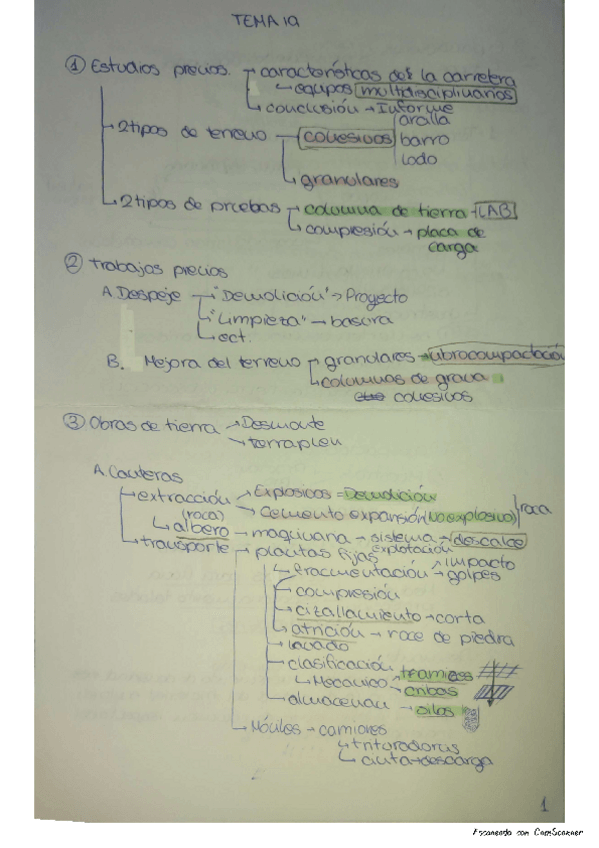 TEMA 10
① Estudios precios. → características del la carretera
↳ equipos multidisciplinarios
↳ conclusión → Informe
↳ 2 tipos de terreno → cohesivos
aralla
barro
lodo
↳ granulares
↳ 2 tipos de pruebas → columna de tierra → LAB
↳ compresión → placa de
carga
② Trabajos precios
A. Despeje → "Demolición" → Proyecto
↳ "Limpieza" → basura
↳ ect.
B. Mejora del terreno → granulares → vibrocompactación
↳ columnas de grava
cohesivos
③ Obras de tierra → Desmonte
→ terraplen
A. Canteras
↳ extracción → Explosivos = Demolición
(roca) → Cemento expansión (No explosivo) roca
↳ albero → maquinaria → sistema → descalce
explotación
↳ transporte → plantas fijas
↳ fragmentación → impacto
→ golpes
↳ compresión
↳ cizallamiento → corta
↳ atrición → roce de piedra
↳ lavado
↳ clasificación → tramiess
↳ Mecánico → cribas
↳ almacenan → silos
↳ Móviles → camiones
↳ trituradoras
↳ carta → descarga
1
Escaneado con CamScanner